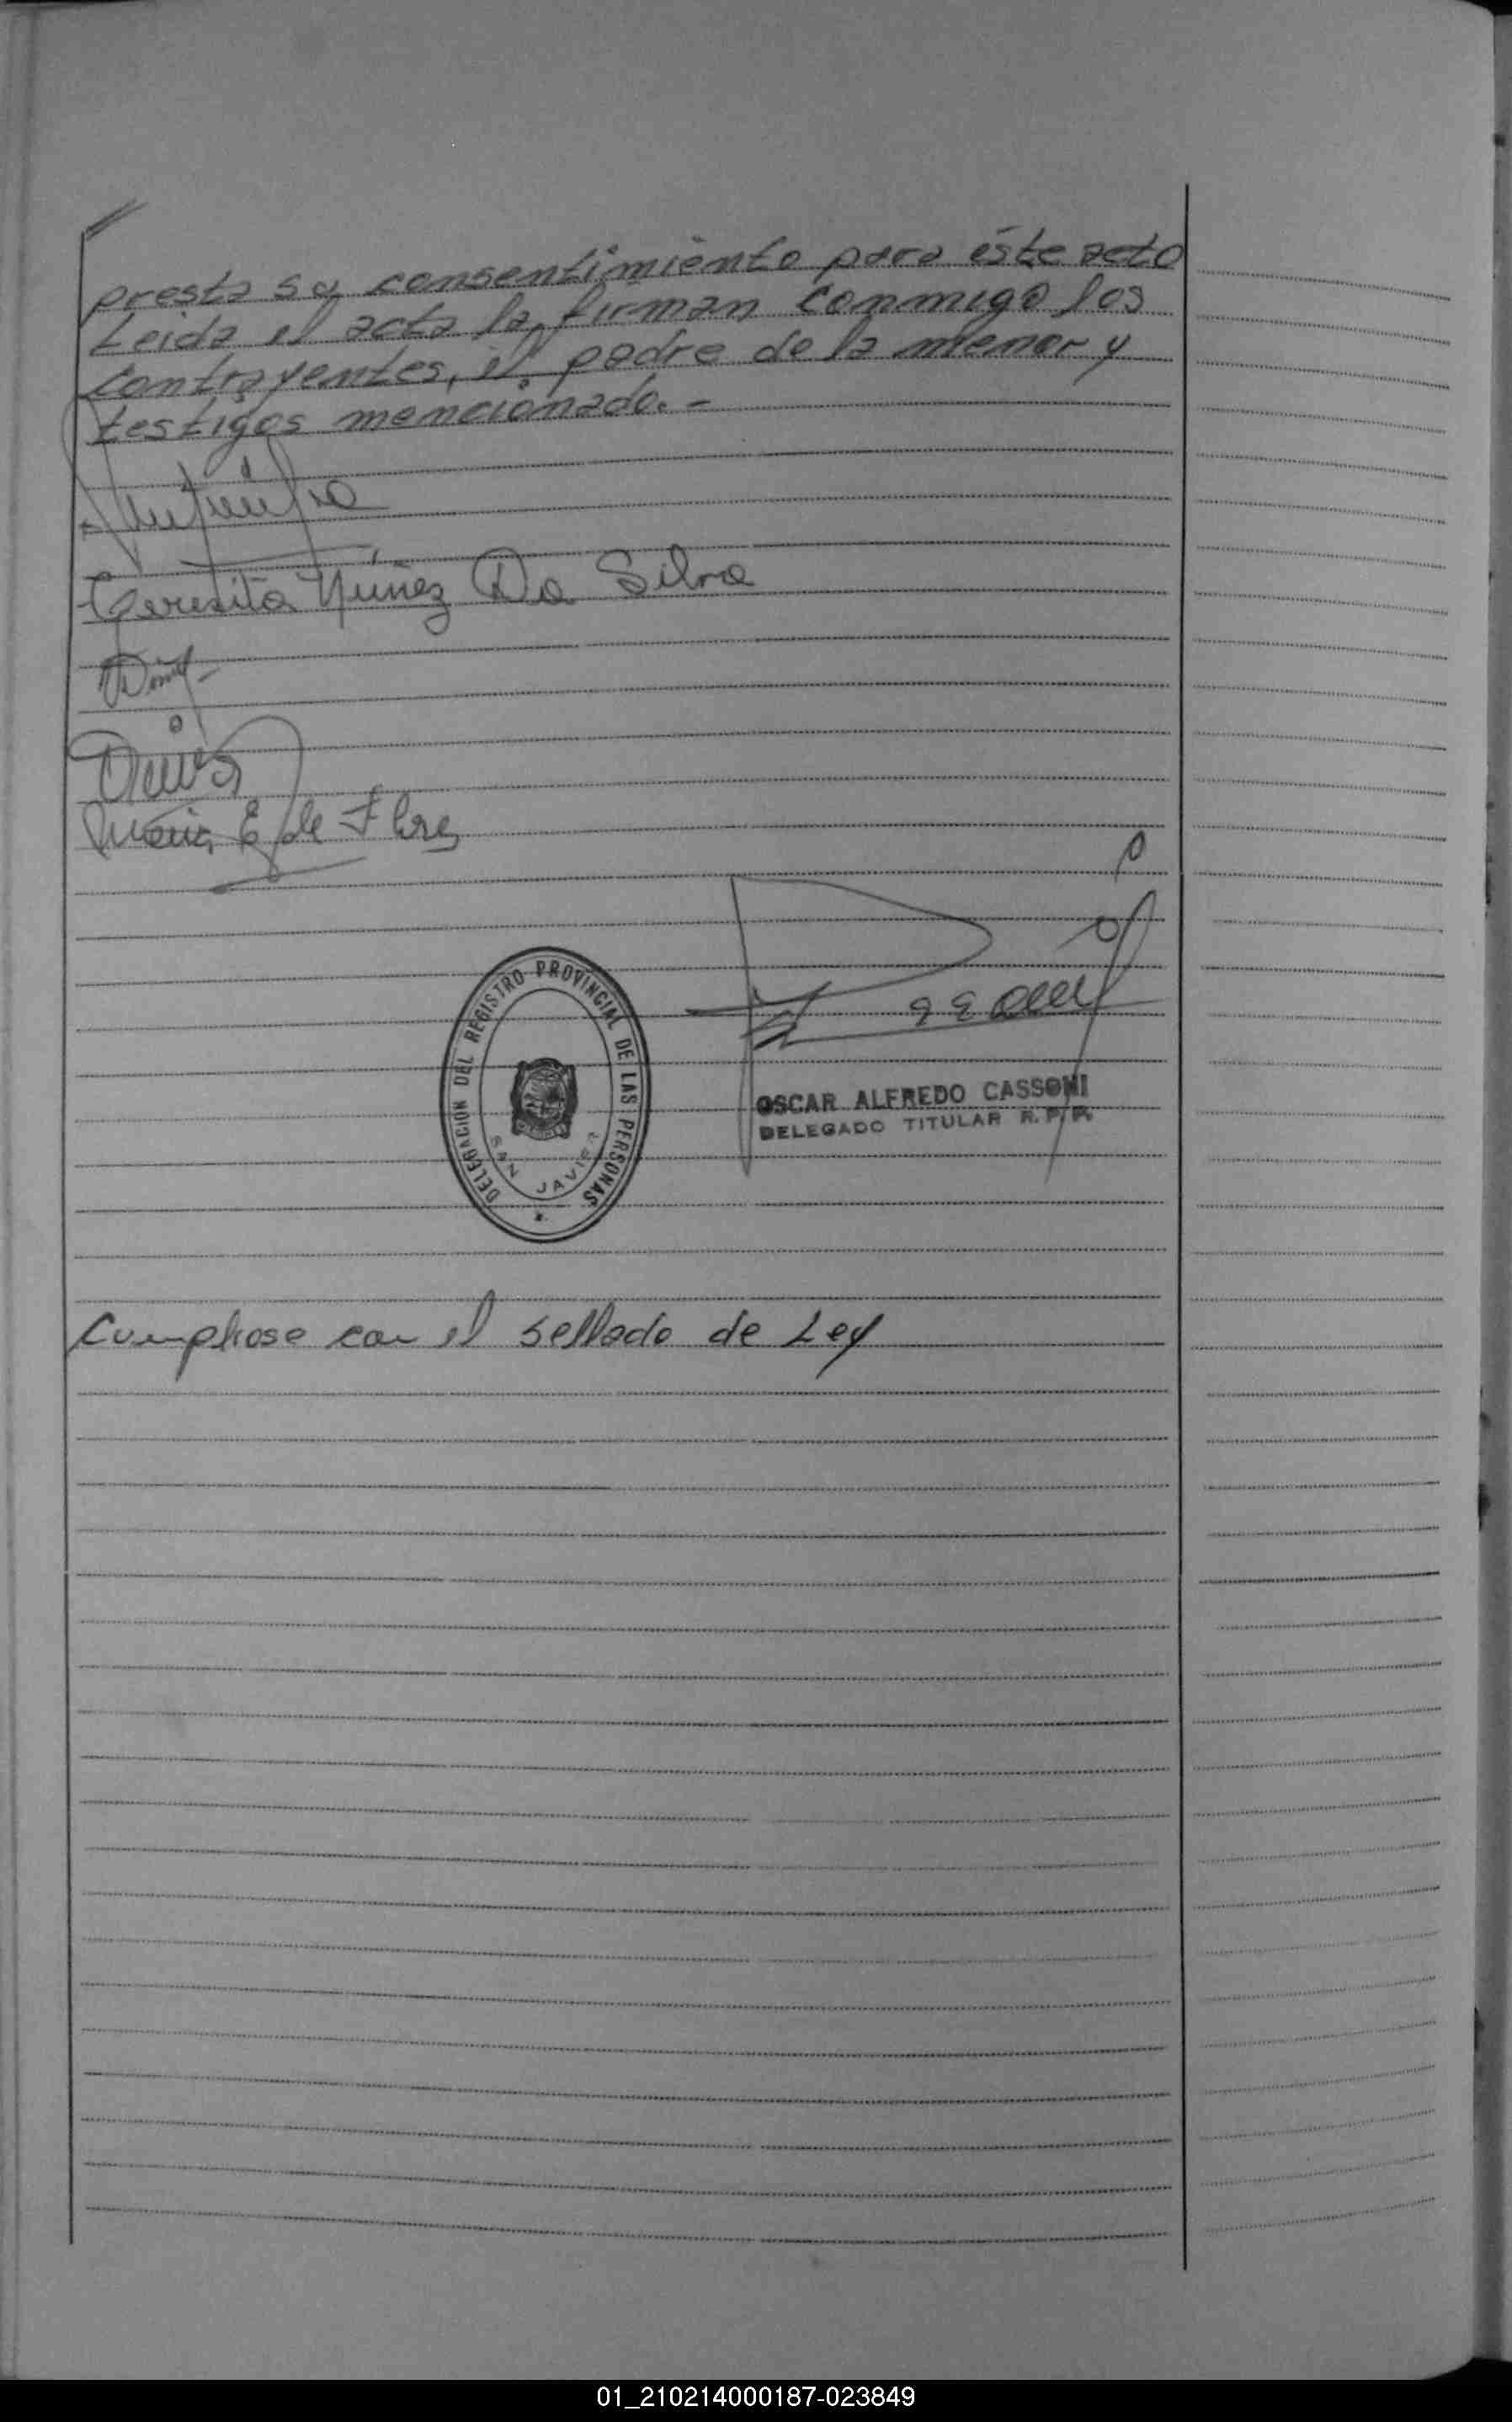 presta su consentimiento para éste acto
Leida el acta la firman conmigo los
contrayentes, el padre de la menor y
testigos mencionado.-
Teresita Núñez Da Silva
Maria E de Flores
DELEGACION DEL REGISTRO PROVINCIAL DE LAS PERSONAS
SAN JAVIER
OSCAR ALFREDO CASSONI
DELEGADO TITULAR R. P. P.
Cumpliose con el sellado de Ley
01_210214000187-023849